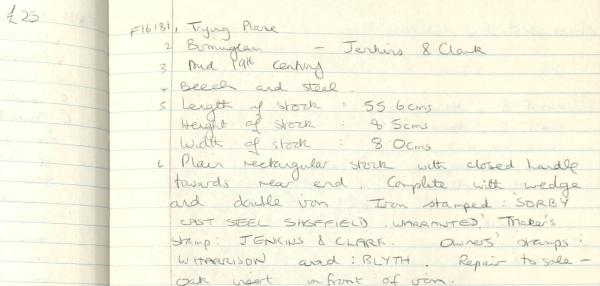 £25
F16181, Trying Plane
2 Birmingham - Jenkins & Clark
3 Mid 19th century
4 Beech and steel.
5 Length of stock : 55 6cms
Height of stock : 8 5cms
Width of stock : 8 0cms
6 Plain rectangular stock with closed handle
towards rear end. Complete with wedge
and double iron Iron stamped: 'SORBY
CAST STEEL SHEFFIELD WARRANTED'. Maker's
stamp: JENKINS & CLARK. Owners' stamps:
W HARRISON and : BLYTH. Repair to sole -
oak insert in front of iron.